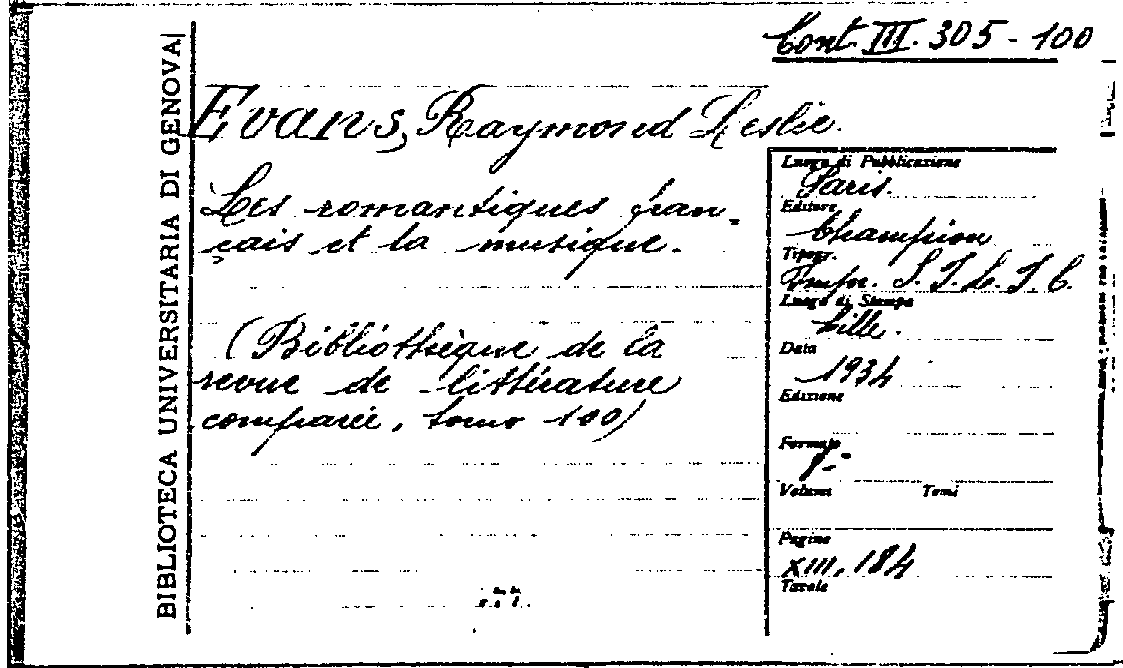 Cont. III. 305 - 100
BIBLIOTECA UNIVERSITARIA DI GENOVA
Evans, Raymond Leslie.
Les romantiques fran-
çais et la musique.
(Bibliothèque de la
revue de littérature
comparée, tomo 100)
Luogo di Pubblicazione
Paris.
Editore
Champion
Tipogr.
Impr. S. I. L. I. C.
Luogo di Stampa
Lille.
Data
1934
Edizione
Formato
Volumi Tomi
Pagine
XIII, 184
Tavole